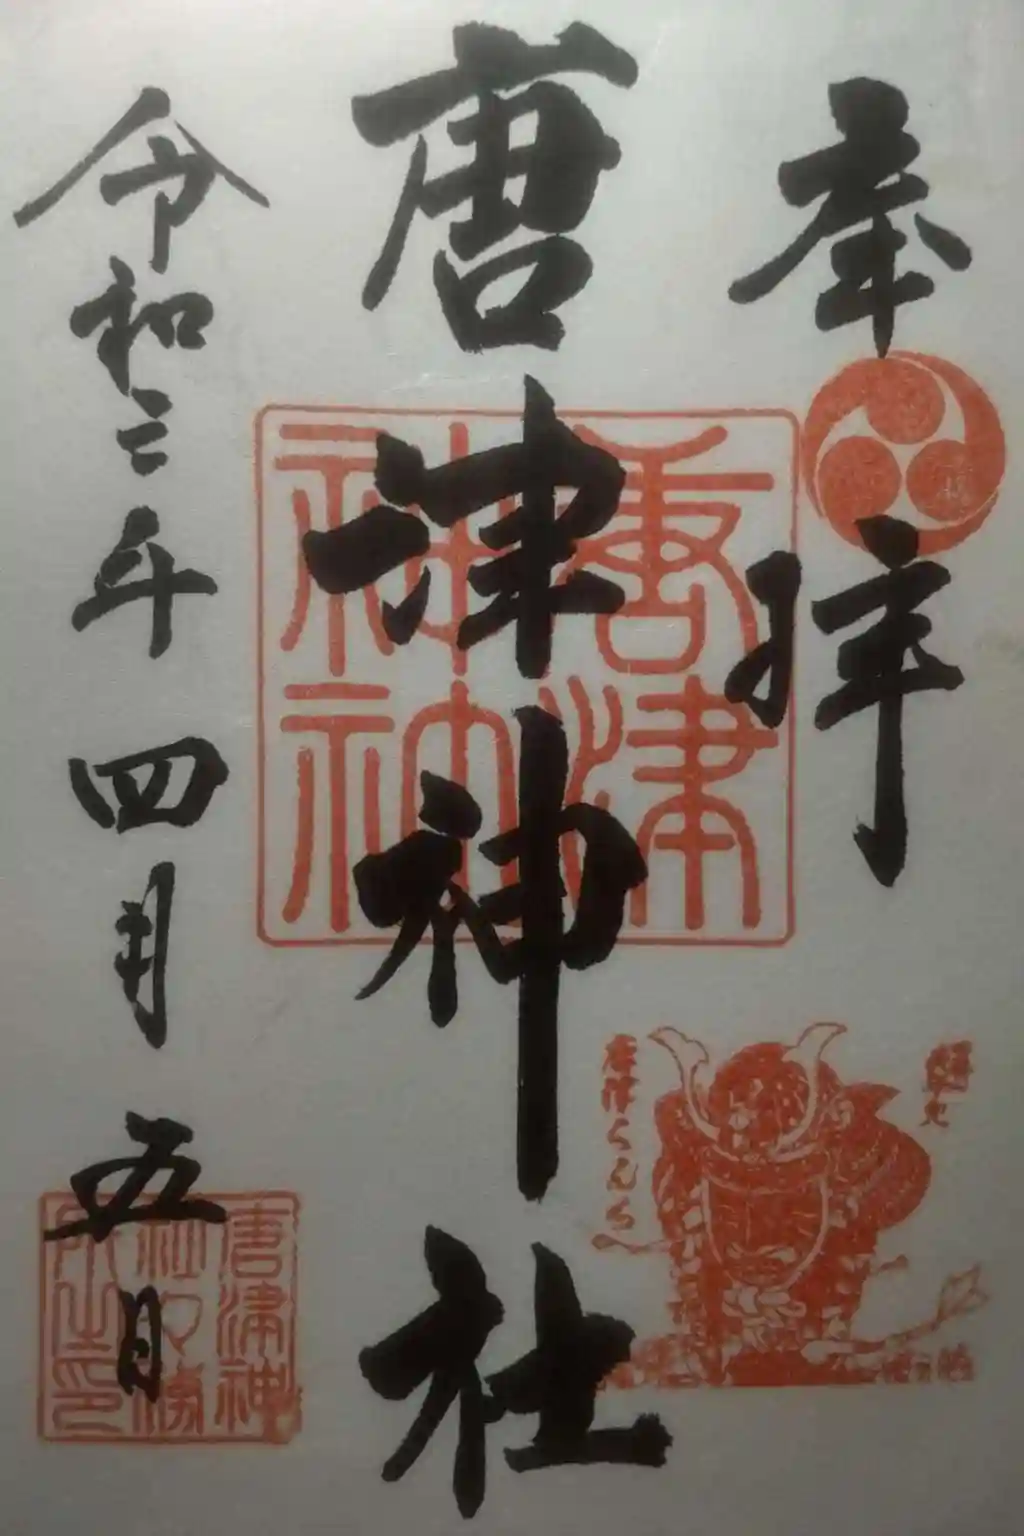 奉拝
唐津神社
唐津神社
唐津くんち
令和二年四月五日
唐津神
社務
所之印